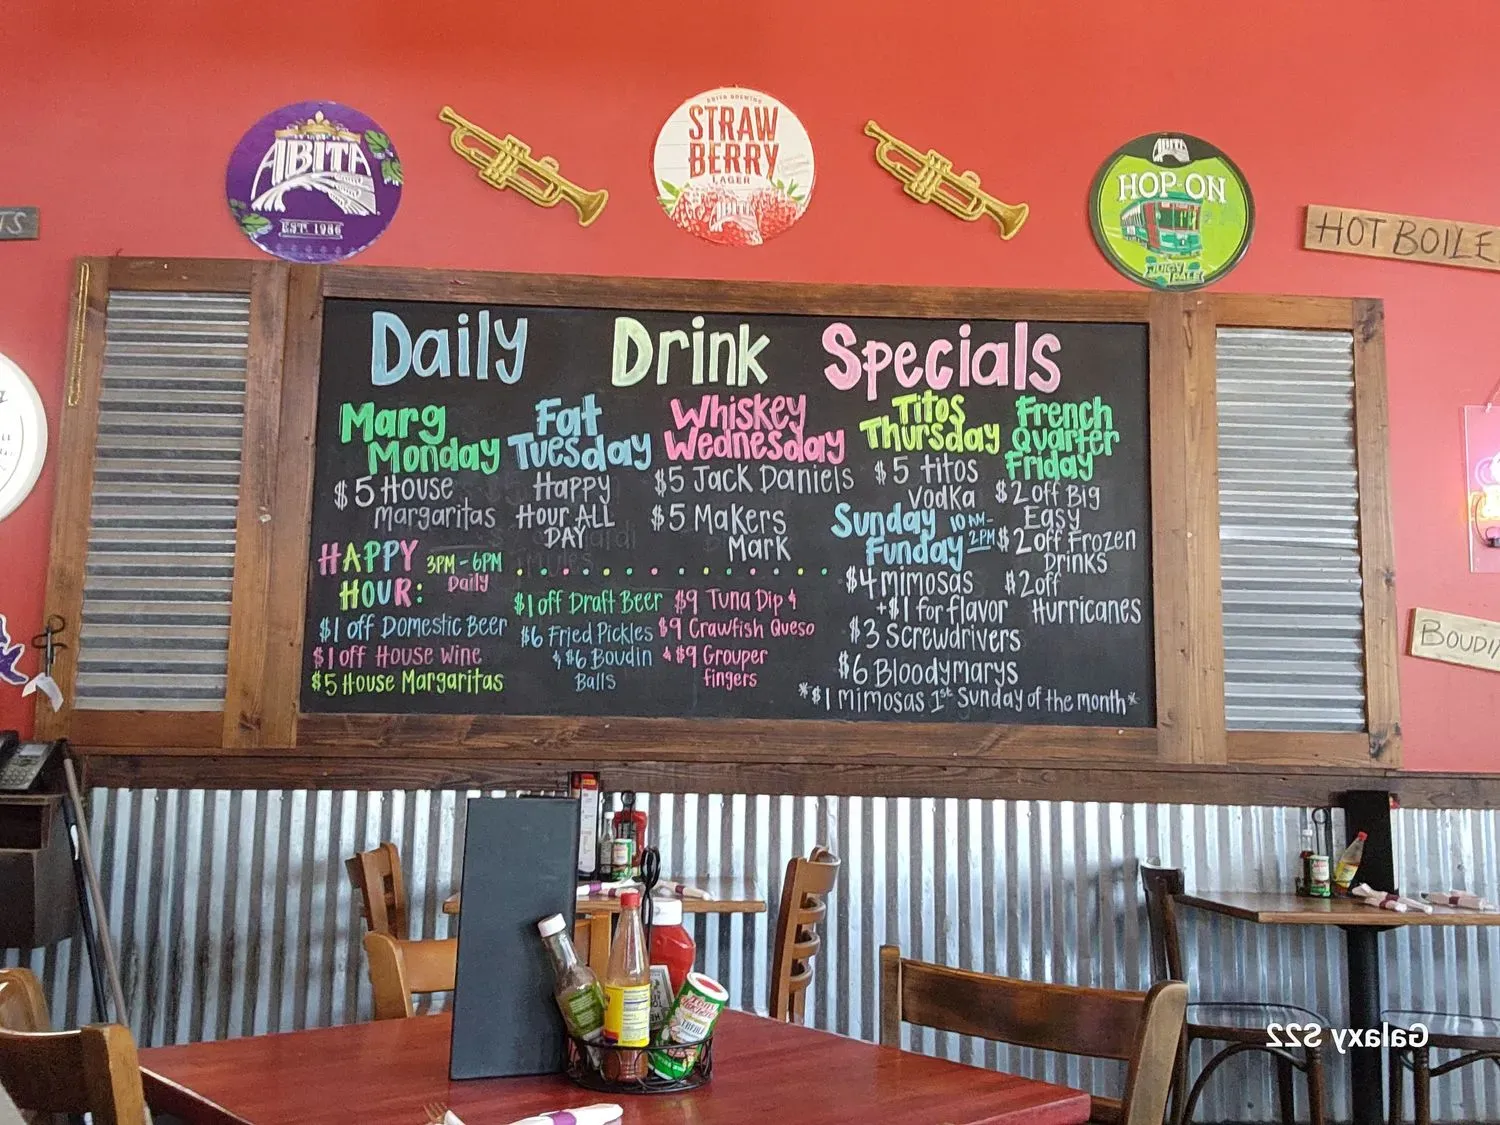 ABITA
EST. 1986
ABITA BREWING
STRAW
BERRY
LAGER
ABITA
ABITA
HOP-ON
JUICY
PALE
TS
HOT BOILE
BOUDI
Daily Drink Specials
Marg
Monday
$5 House
Margaritas
Fat
Tuesday
Happy
Hour ALL
DAY
Whiskey
Wednesday
$5 Jack Daniels
$5 Makers
Mark
Titos
Thursday
$5 titos
Vodka
French
Quarter
Friday
$2 off Big
Easy
$2 off Frozen
Drinks
$2 off
Hurricanes
Sunday 10AM-
Funday 2PM
$4 mimosas
+$1 for flavor
$3 Screwdrivers
$6 Bloodymarys
*$1 mimosas 1st Sunday of the month*
HAPPY 3PM-6PM
HOUR: Daily
$1 off Domestic Beer
$1 off House Wine
$5 House Margaritas
$1 off Draft Beer
$6 Fried Pickles
& $6 Boudin
Balls
$9 Tuna Dip &
$9 Crawfish Queso
& $9 Grouper
fingers
Galaxy S22